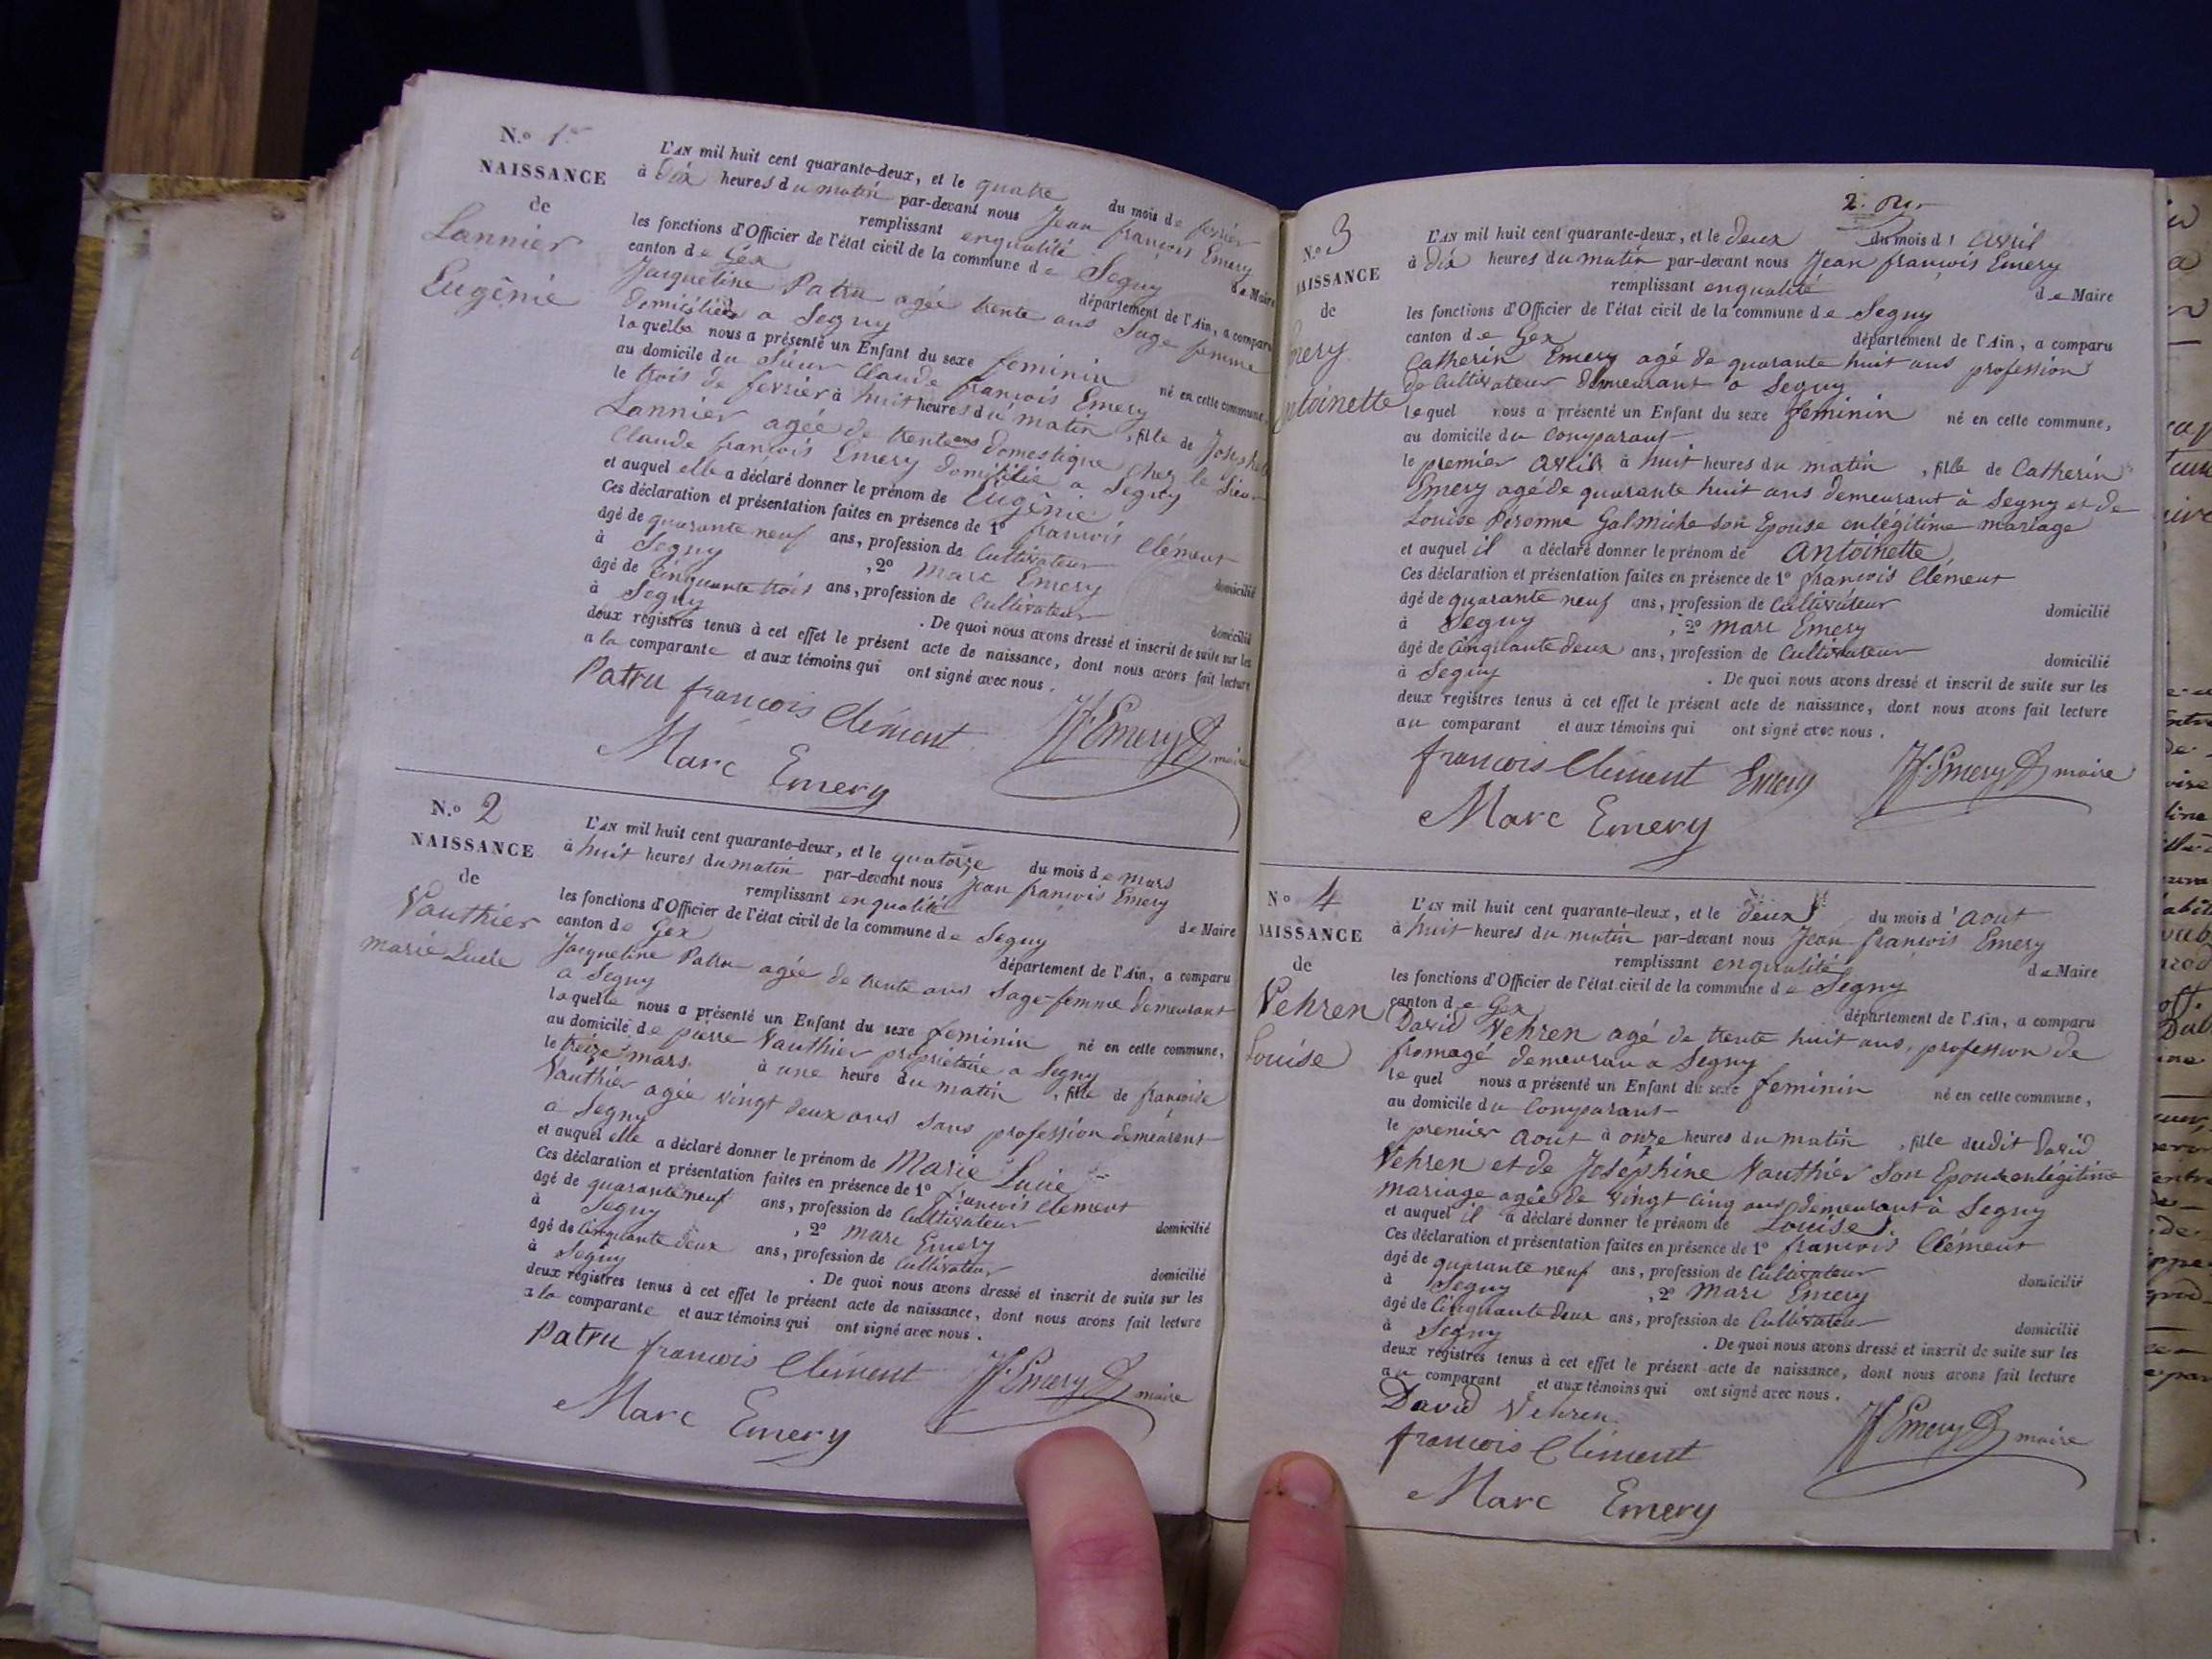 N.º 1er
NAISSANCE
de
Lannier
Eugênie
L'AN mil huit cent quarante-deux, et le quatre du mois de fevrier
à dix heures du matin par-devant nous Jean françois Emery
remplissant enqualité de Maire
les fonctions d'Officier de l'état civil de la commune de Segny
canton de Gex département de l'Ain, a comparu
Jacqueline Patru agée trente ans Sage femme
domiciliée a Segny
laquelle nous a présenté un Enfant du sexe feminin né en cette commune,
au domicile du Sieur Claude françois Emery
le trois de fevrier à huit heures du matin, fille de Josephte
Lannier agée de trente ans domestique chez le Sieur
Claude françois Emery domicilié a Segny
et auquel elle a déclaré donner le prénom de Eugênie
Ces déclaration et présentation faites en présence de 1º francois Clément
âgé de quarante neuf ans, profession de Cultivateur domicilié
à Segny, 2º Marc Emery
âgé de cinquante trois ans, profession de Cultivateur domicilié
à Segny. De quoi nous avons dressé et inscrit de suite sur les
deux registres tenus à cet effet le présent acte de naissance, dont nous avons fait lecture
a la comparante et aux témoins qui ont signé avec nous.
Patru francois Clément JF Emery maire
Marc Emery
N.º 2
NAISSANCE
de
Vauthier
marie Lucie
L'AN mil huit cent quarante-deux, et le quatorze du mois de mars
à huit heures du matin par-devant nous Jean françois Emery
remplissant enqualité de Maire
les fonctions d'Officier de l'état civil de la commune de Segny
canton de Gex département de l'Ain, a comparu
Jacqueline Patru agée de trente ans Sage-femme demeurant
a Segny
laquelle nous a présenté un Enfant du sexe feminin né en cette commune,
au domicile de pierre Vauthier propriétaire a Segny
le treize mars à une heure du matin, fille de francoise
Vauthier agée vingt deux ans sans profession demeurant
a Segny
et auquel elle a déclaré donner le prénom de Marie Lucie
Ces déclaration et présentation faites en présence de 1º francois Clement
âgé de quarante neuf ans, profession de Cultivateur domicilié
à Segny, 2º Marc Emery
âgé de Cinquante deux ans, profession de Cultivateur domicilié
à Segny. De quoi nous avons dressé et inscrit de suite sur les
deux registres tenus à cet effet le présent acte de naissance, dont nous avons fait lecture
a la comparante et aux témoins qui ont signé avec nous.
Patru francois Clément JF Emery maire
Marc Emery
2.
N.º 3
AISSANCE
de
mery
toinette
L'AN mil huit cent quarante-deux, et le deux du mois d' Avril
à dix heures du matin par-devant nous Jean françois Emery
remplissant enqualité de Maire
les fonctions d'Officier de l'état civil de la commune de Segny
canton de Gex département de l'Ain, a comparu
Catherin Emery agé de quarante huit ans profession
de Cultivateur demeurant a Segny
lequel nous a présenté un Enfant du sexe feminin né en cette commune,
au domicile du Comparant
le premier Avril à huit heures du matin, fille de Catherin
Emery agé de quarante huit ans demeurant à Segny et de
Louise Peronne Galmiche Son Epouse en légitime mariage
et auquel il a déclaré donner le prénom de Antoinette
Ces déclaration et présentation faites en présence de 1º francois Clément
âgé de quarante neuf ans, profession de Cultivateur domicilié
à Segny, 2º Marc Emery
âgé de Cinquante deux ans, profession de Cultivateur domicilié
à Segny. De quoi nous avons dressé et inscrit de suite sur les
deux registres tenus à cet effet le présent acte de naissance, dont nous avons fait lecture
au comparant et aux témoins qui ont signé avec nous.
francois Clément Emery JF Emery maire
Marc Emery
Nº 4
AISSANCE
de
Vehren
Louise
L'AN mil huit cent quarante-deux, et le deux du mois d' Aout
à huit heures du matin par-devant nous Jean françois Emery
remplissant enqualité de Maire
les fonctions d'Officier de l'état civil de la commune de Segny
canton de Gex département de l'Ain, a comparu
David Vehren agé de trente huit ans, profession de
fromagé demeuran a Segny
lequel nous a présenté un Enfant du sexe feminin né en cette commune,
au domicile du Comparant
le premier Aout à onze heures du matin, fille dudit David
Vehren et de Joséphine Vauthier Son Epouse en légitime
mariage agée de vingt cinq ans demeurant à Segny
et auquel il a déclaré donner le prénom de Louise
Ces déclaration et présentation faites en présence de 1º francois Clément
âgé de quarante neuf ans, profession de Cultivateur domicilié
à Segny, 2º Marc Emery
âgé de Cinquante deux ans, profession de Cultivateur domicilié
à Segny. De quoi nous avons dressé et inscrit de suite sur les
deux registres tenus à cet effet le présent acte de naissance, dont nous avons fait lecture
au comparant et aux témoins qui ont signé avec nous.
David Vehren
francois Clément JF Emery maire
Marc Emery